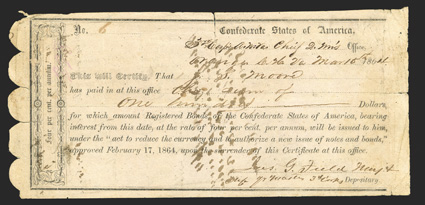 No. 6 Confederate States of America,
Chief Office,
Mar 1864
This will Certify, That Moore
has paid in at this office the sum of
One hundred Dollars,
for which amount Registered Bonds of the Confederate States of America, bearing
interest from this date, at the rate of four per cent. per annum, will be issued to him,
under the "act to reduce the currency and authorize a new issue of notes and bonds,"
approved February 17, 1864, upon the surrender of this Certificate at this office.
Jas. G. Field
Depositary
Four per cent. per annum.